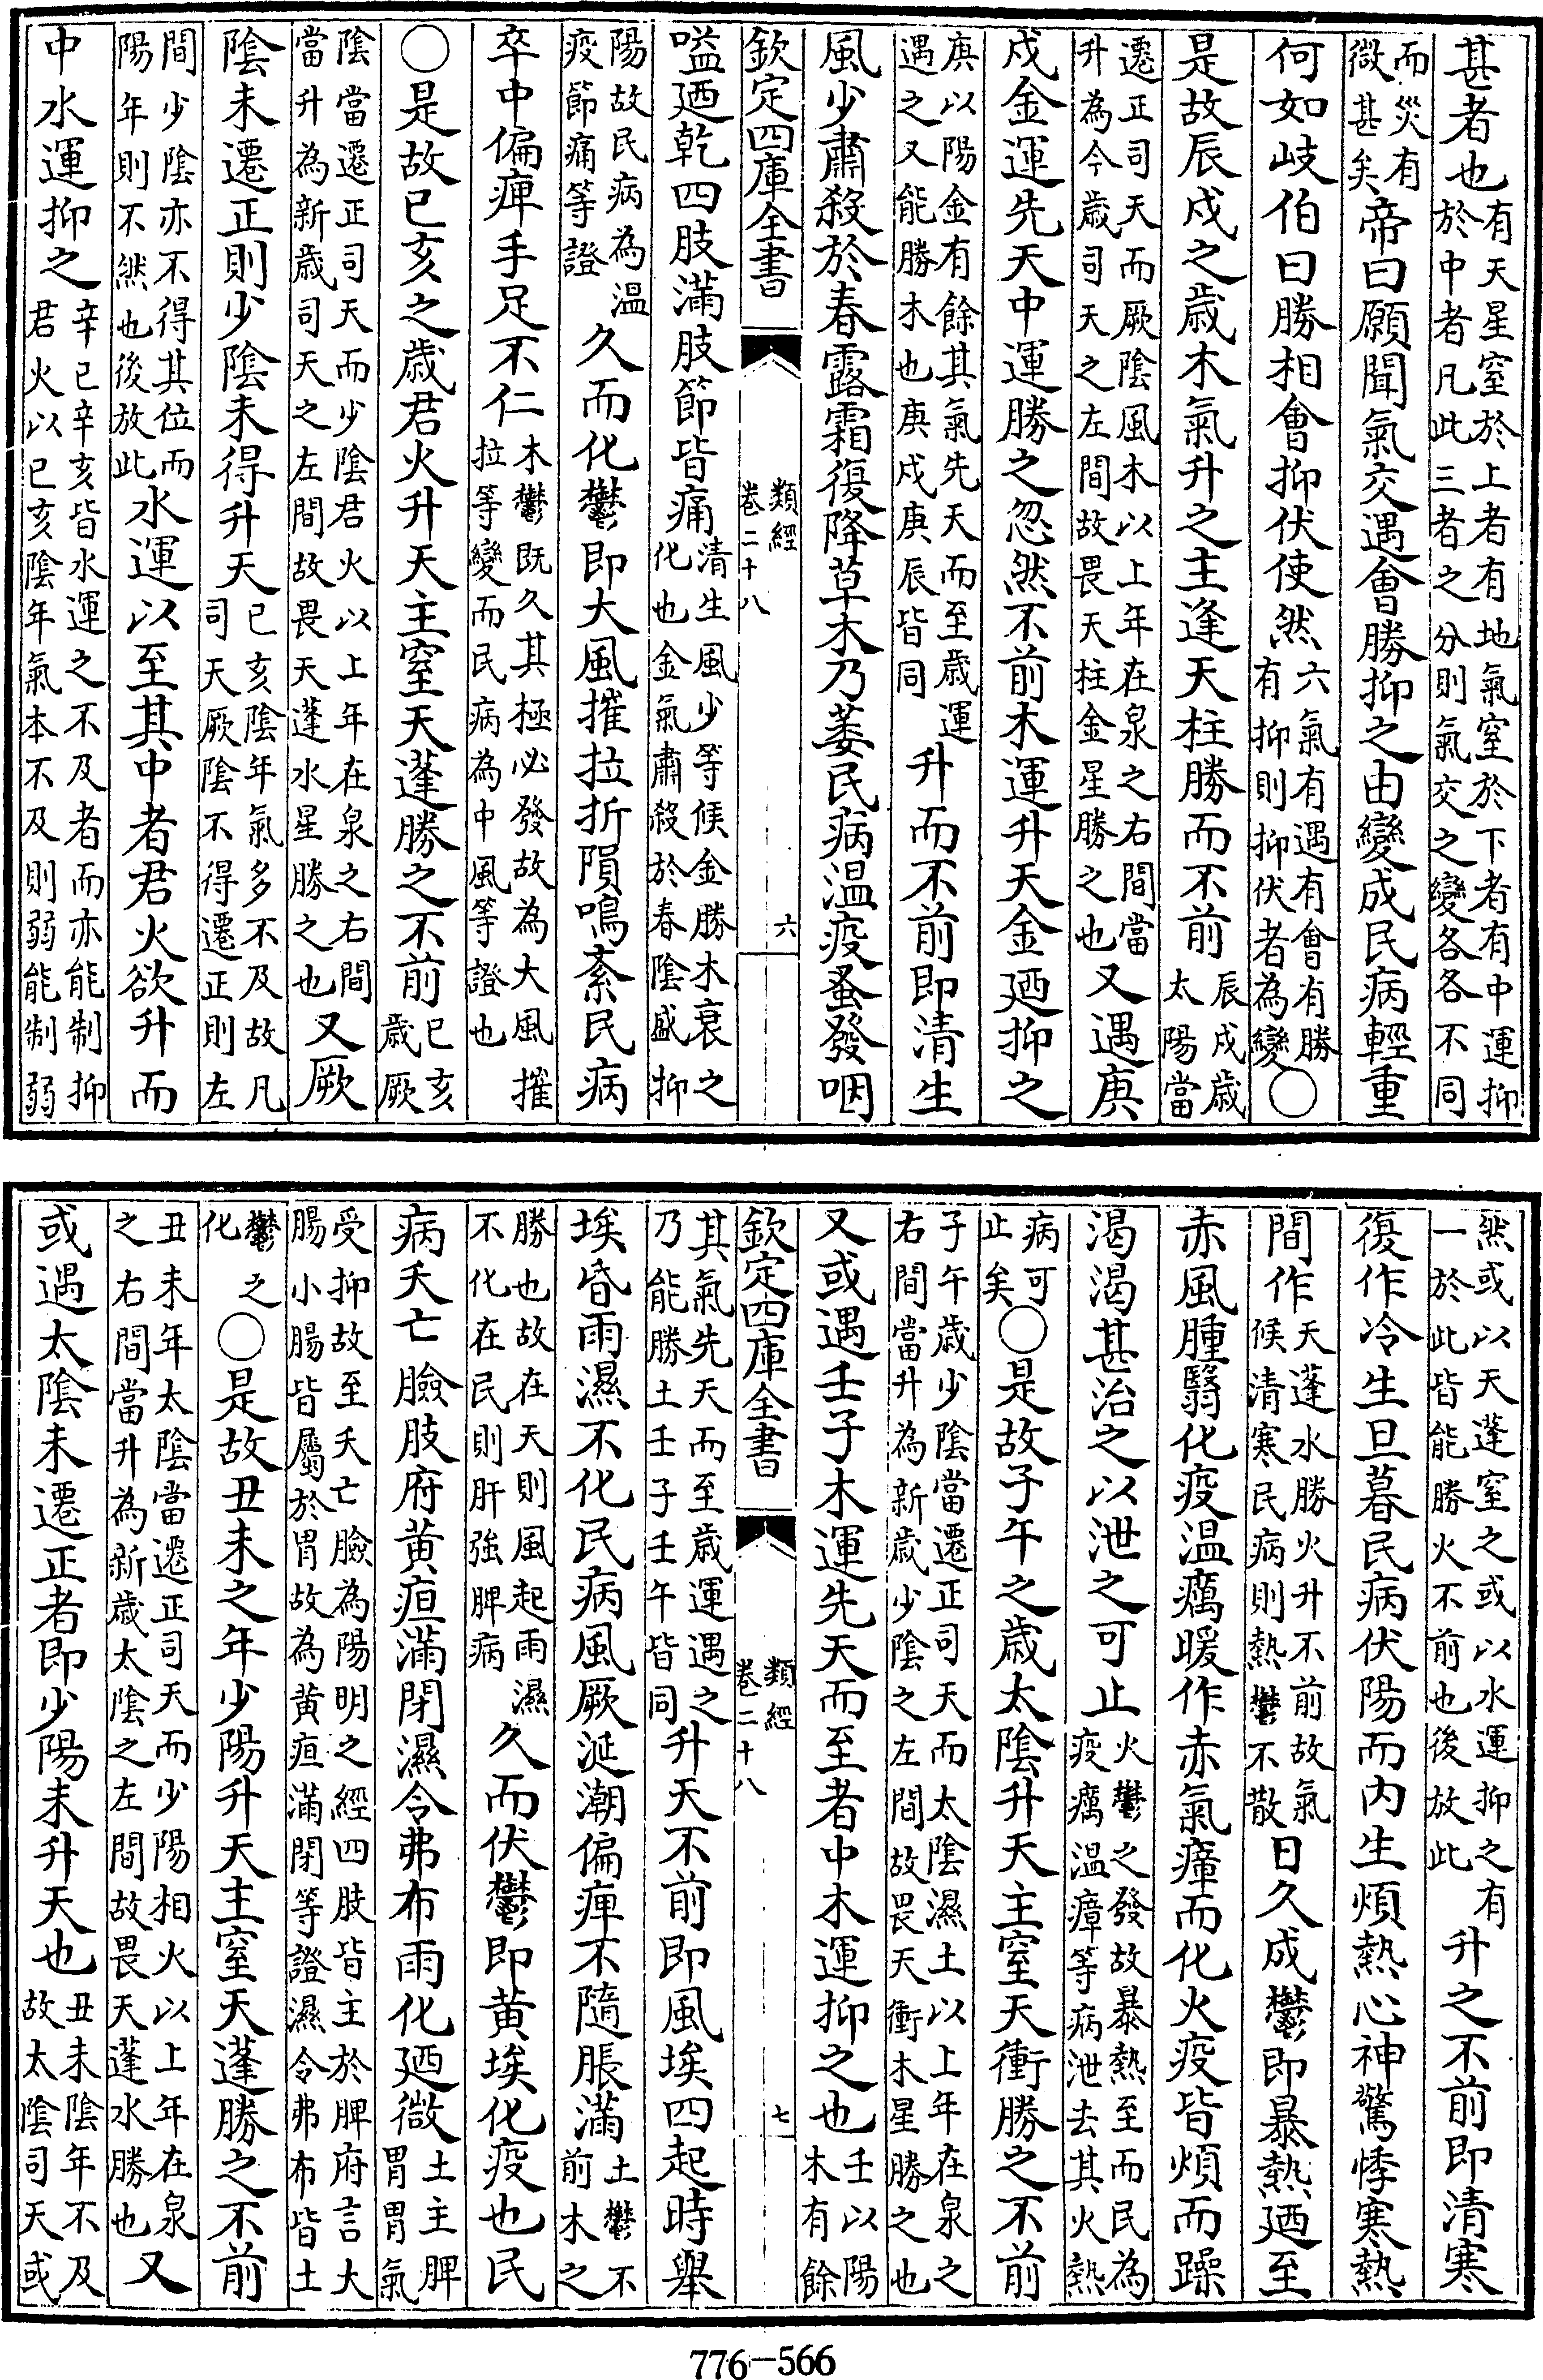 甚者也有天星窒於上者有地氣窒於下者有中運抑於中者凡此三者之分則氣交之變各各不同
而災有微甚矣帝曰願聞氣交遇會勝抑之由變成民病輕重
何如岐伯曰勝相會抑伏使然六氣有遇有會有勝有抑則抑伏者為變○
是故辰戌之歲木氣升之主逢天柱勝而不前辰戌歲太陽當
遷正司天而厥陰風木以上年在泉之右間當升為今歲司天之左間故畏天柱金星勝之也又遇庚
戌金運先天中運勝之忽然不前木運升天金廼抑之
庚以陽金有餘其氣先天而至歲運遇之又能勝木也庚戌庚辰皆同升而不前即清生
風少肅殺於春露霜復降草木乃萎民病温疫蚤發咽
欽定四庫全書 類經 卷二十八 六
嗌廼乾四肢滿肢節皆痛清生風少等候金勝木衰之化也金氣肅殺於春陰盛抑
陽故民病為温疫節痛等證久而化鬱即大風摧拉折隕鳴紊民病
卒中偏痺手足不仁木鬱既久其極必發故為大風摧拉等變而民病為中風等證也
○是故巳亥之歲君火升天主窒天蓬勝之不前巳亥歲厥
陰當遷正司天而少陰君火以上年在泉之右間當升為新歲司天之左間故畏天蓬水星勝之也又厥
陰未遷正則少陰未得升天巳亥陰年氣多不及故凡司天厥陰不得遷正則左
間少陰亦不得其位而陽年則不然也後放此水運以至其中者君火欲升而
中水運抑之辛巳辛亥皆水運之不及者而亦能制抑君火以巳亥陰年氣本不及則弱能制弱
然或以天蓬窒之或以水運抑之有一於此皆能勝火不前也後放此升之不前即清寒
復作冷生旦暮民病伏陽而內生煩熱心神驚悸寒熱
間作天蓬水勝火升不前故氣候清寒民病則熱鬱不散日久成鬱即暴熱廼至
赤風腫翳化疫温癘暖作赤氣瘴而化火疫皆煩而躁
渴渴甚治之以泄之可止火鬱之發故暴熱至而民為疫癘温瘴等病泄去其火熱
病可止矣○是故子午之歲太陰升天主窒天衝勝之不前
子午歲少陰當遷正司天而太陰濕土以上年在泉之右間當升為新歲少陰之左間故畏天衝木星勝之也
又或遇壬子木運先天而至者中木運抑之也壬以陽木有餘
欽定四庫全書 類經 卷二十八 七
其氣先天而至歲運遇之乃能勝土壬子壬午皆同升天不前即風埃四起時舉
埃昏雨濕不化民病風厥涎潮偏痺不隨脹滿土鬱不前木之
勝也故在天則風起雨濕不化在民則肝強脾病久而伏鬱即黃埃化疫也民
病夭亡臉肢府黃疸滿閉濕令弗布雨化廼微土主脾胃胃氣
受抑故至夭亡臉為陽明之經四肢皆主於脾府言大腸小腸皆屬於胃故為黃疸滿閉等證濕令弗布皆土
鬱之化○是故丑未之年少陽升天主窒天蓬勝之不前
丑未年太陰當遷正司天而少陽相火以上年在泉之右間當升為新歲太陰之左間故畏天蓬水勝也又
或遇太陰未遷正者即少陽未升天也丑未陰年不及故太陰司天或
776-566